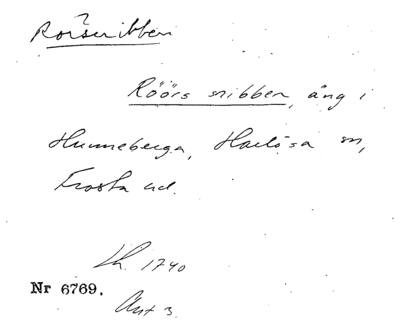 Rörsnibben
Röörs snibben, äng i
Hunneberga, Harlösa sn,
Frosta hd.
Lh. 1740
Nr 6769.
Akt 3.